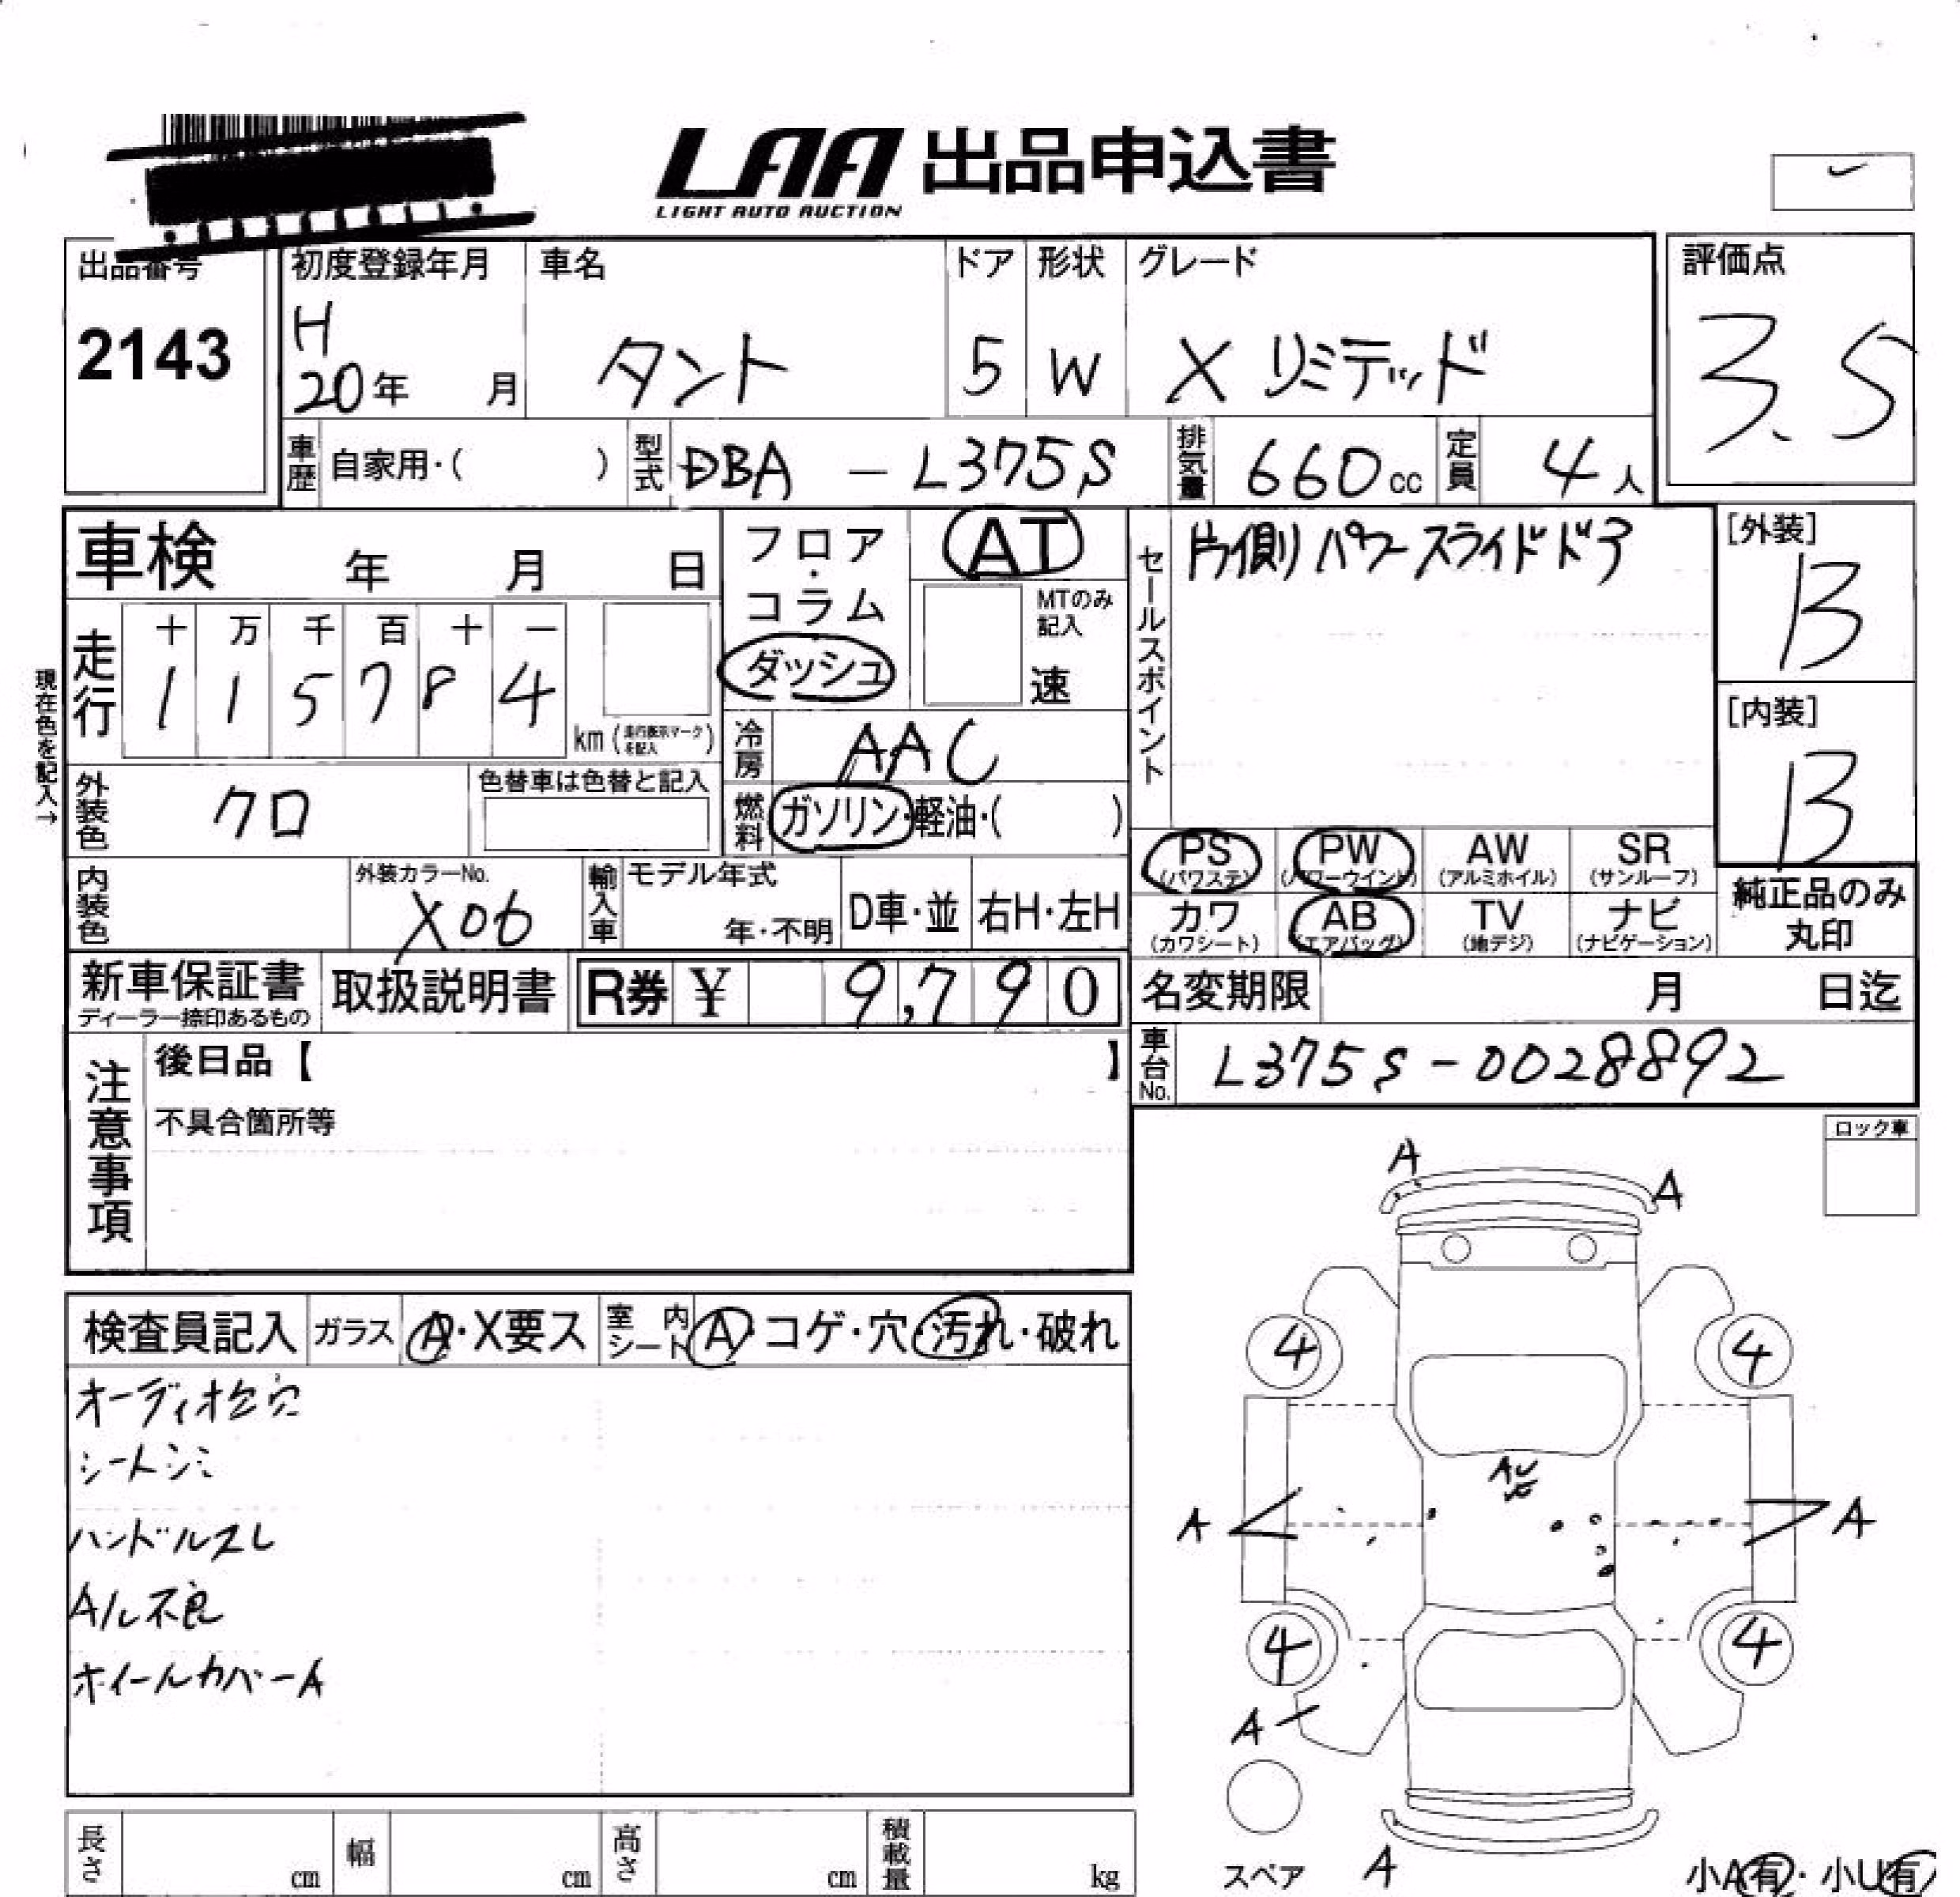 LAA 出品申込書
LIGHT AUTO AUCTION
出品番号
2143
初度登録年月
H
20年 月
車名
タント
ドア
5
形状
W
グレード
X リミテッド
評価点
3.5
車歴 自家用・( )
型式 DBA - L375S
排気量 660cc
定員 4人
車検 年 月 日
走行
十 万 千 百 十 一
1 1 5 7 8 4
km(走行表示マークを記入)
現在色を記入→
フロア・コラム
ダッシュ
AT
MTのみ記入
速
冷房 AAC
燃料 ガソリン・軽油・( )
セールスポイント
片側パワースライドドア
[外装]
B
[内装]
B
外装色 クロ
色替車は色替と記入
内装色
外装カラーNo.
X06
輸入車
モデル年式
年・不明
D車・並
右H・左H
PS
(パワステ)
PW
(パワーウインド)
AW
(アルミホイル)
SR
(サンルーフ)
カワ
(カワシート)
AB
(エアバッグ)
TV
(地デジ)
ナビ
(ナビゲーション)
純正品のみ
丸印
新車保証書
ディーラー捺印あるもの
取扱説明書
R券 ¥ 9,790
名変期限 月 日迄
車台No. L375S-0028892
注意事項
後日品【 】
不具合箇所等
ロック車
検査員記入
ガラス A・X要ス
室内シート A・コゲ・穴・汚れ・破れ
シートシミ
ハンドルスレ
A/L不良
ホイールカバーA
A
A
4
4
AU
A
A
4
4
A
スペア
A
小A有・小U有
長さ cm
幅 cm
高さ cm
積載量 kg